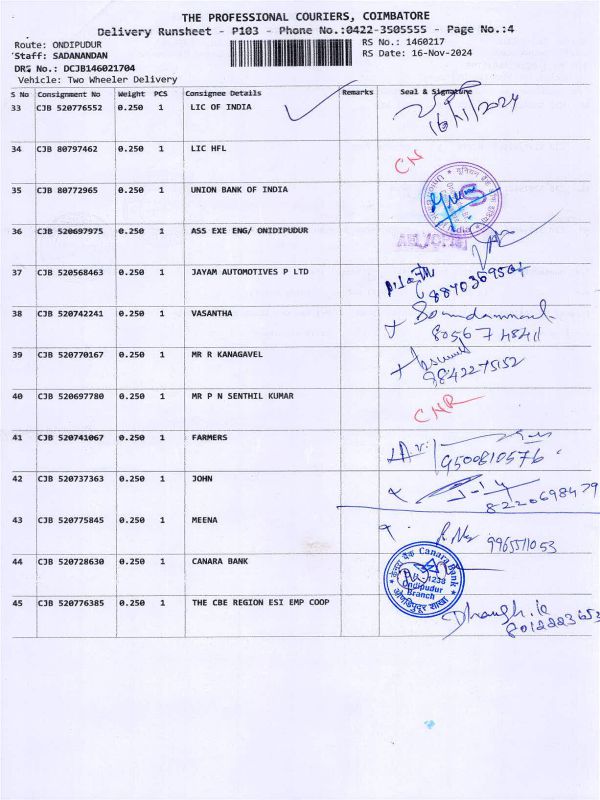 THE PROFESSIONAL COURIERS, COIMBATORE
Delivery Runsheet - P103 - Phone No.:0422-3505555 - Page No.:4
Route: ONDIPUDUR RS No.: 1460217
Staff: SADANANDAN RS Date: 16-Nov-2024
DRS No.: DCJB146021704
Vehicle: Two Wheeler Delivery
S No Consignment No Weight PCS Consignee Details Remarks Seal & Signature
33 CJB 520776552 0.250 1 LIC OF INDIA 16/11/2024
34 CJB 80797462 0.250 1 LIC HFL CN
35 CJB 80772965 0.250 1 UNION BANK OF INDIA
36 CJB 520697975 0.250 1 ASS EXE ENG/ ONIDIPUDUR
37 CJB 520568463 0.250 1 JAYAM AUTOMOTIVES P LTD
38 CJB 520742241 0.250 1 VASANTHA
39 CJB 520770167 0.250 1 MR R KANAGAVEL 9842275152
40 CJB 520697780 0.250 1 MR P N SENTHIL KUMAR CNR
41 CJB 520741067 0.250 1 FARMERS 9500810576
42 CJB 520737363 0.250 1 JOHN 8220698479
43 CJB 520775845 0.250 1 MEENA
44 CJB 520728630 0.250 1 CANARA BANK केनरा बैंक Canara Bank
Ondipudur
Branch
45 CJB 520776385 0.250 1 THE CBE REGION ESI EMP COOP